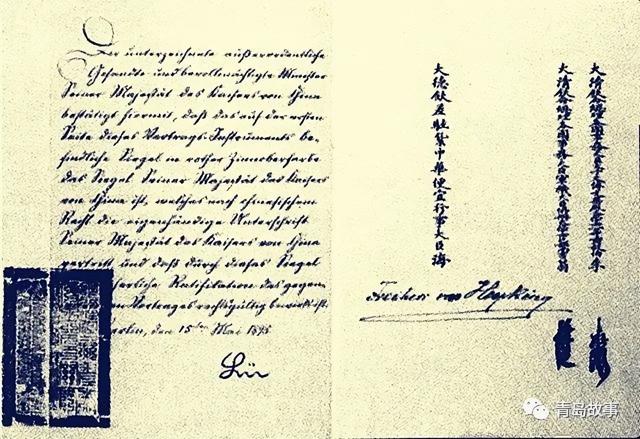 Der unterzeichnete außerordentliche
Gesandte und bevollmächtigte Minister
Seiner Majestät des Kaisers von China
bestätigt hiermit, daß das auf der ersten
Seite dieses Vertrags-Instruments be-
findliche Siegel in rother Zinnoberfarbe
das Siegel Seiner Majestät des Kaisers
von China ist, welches nach chinesischem
Recht die eigenhändige Unterschrift
Seiner Majestät des Kaisers von China
vertritt und daß durch dieses Siegel
herliche Ratifikation des gegen
n Vertrages rechtsgültig bewirkt ist.
erlin, den 15ten Mai 1898
Lü
大德欽差駐紮中華便宜行事大臣海
Freiherr von Heyking
大清欽命總理各國事務
大清欽命總理各國事務
青岛故事